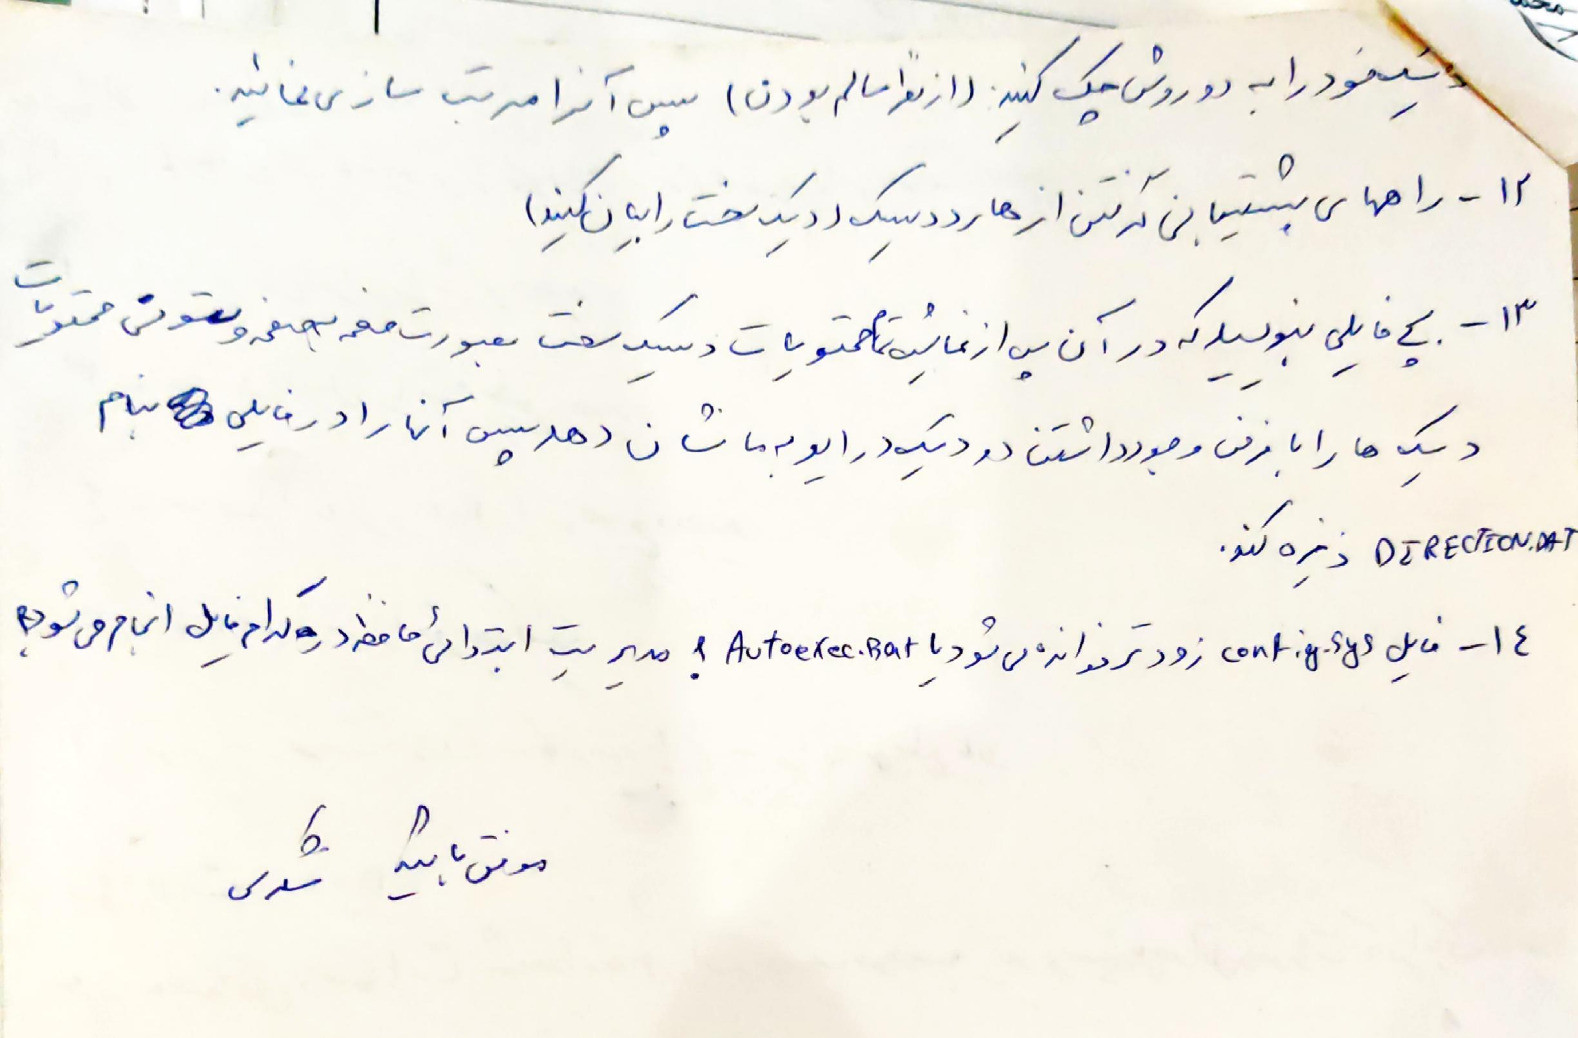 دیسک خود را به دو روش چک کنید. (از نظر سالم بودن) سپس آنرا مرتب سازی نمائید.
۱۲- راههای پشتیبانی گرفتن از هارد دیسک (دیسک سخت را بیان کنید)
۱۳- بچ فایلی بنویسید که در آن پس از نمایش تمام محتویات دیسک سخت بصورت صفحه به صفحه و ستونی محتویات
دیسک ها را با فرض وجود داشتن دو دیسک درایو به ما نشان دهد سپس آنها را در فایلی بنام
DIRECTION.DAT ذخیره کند.
۱۴- فایل config.sys زودتر خوانده می شود یا Autoexec.Bat ؟ مدیریت ابتدائی حافظه در کدام فایل انجام می شود؟
موفق باشید